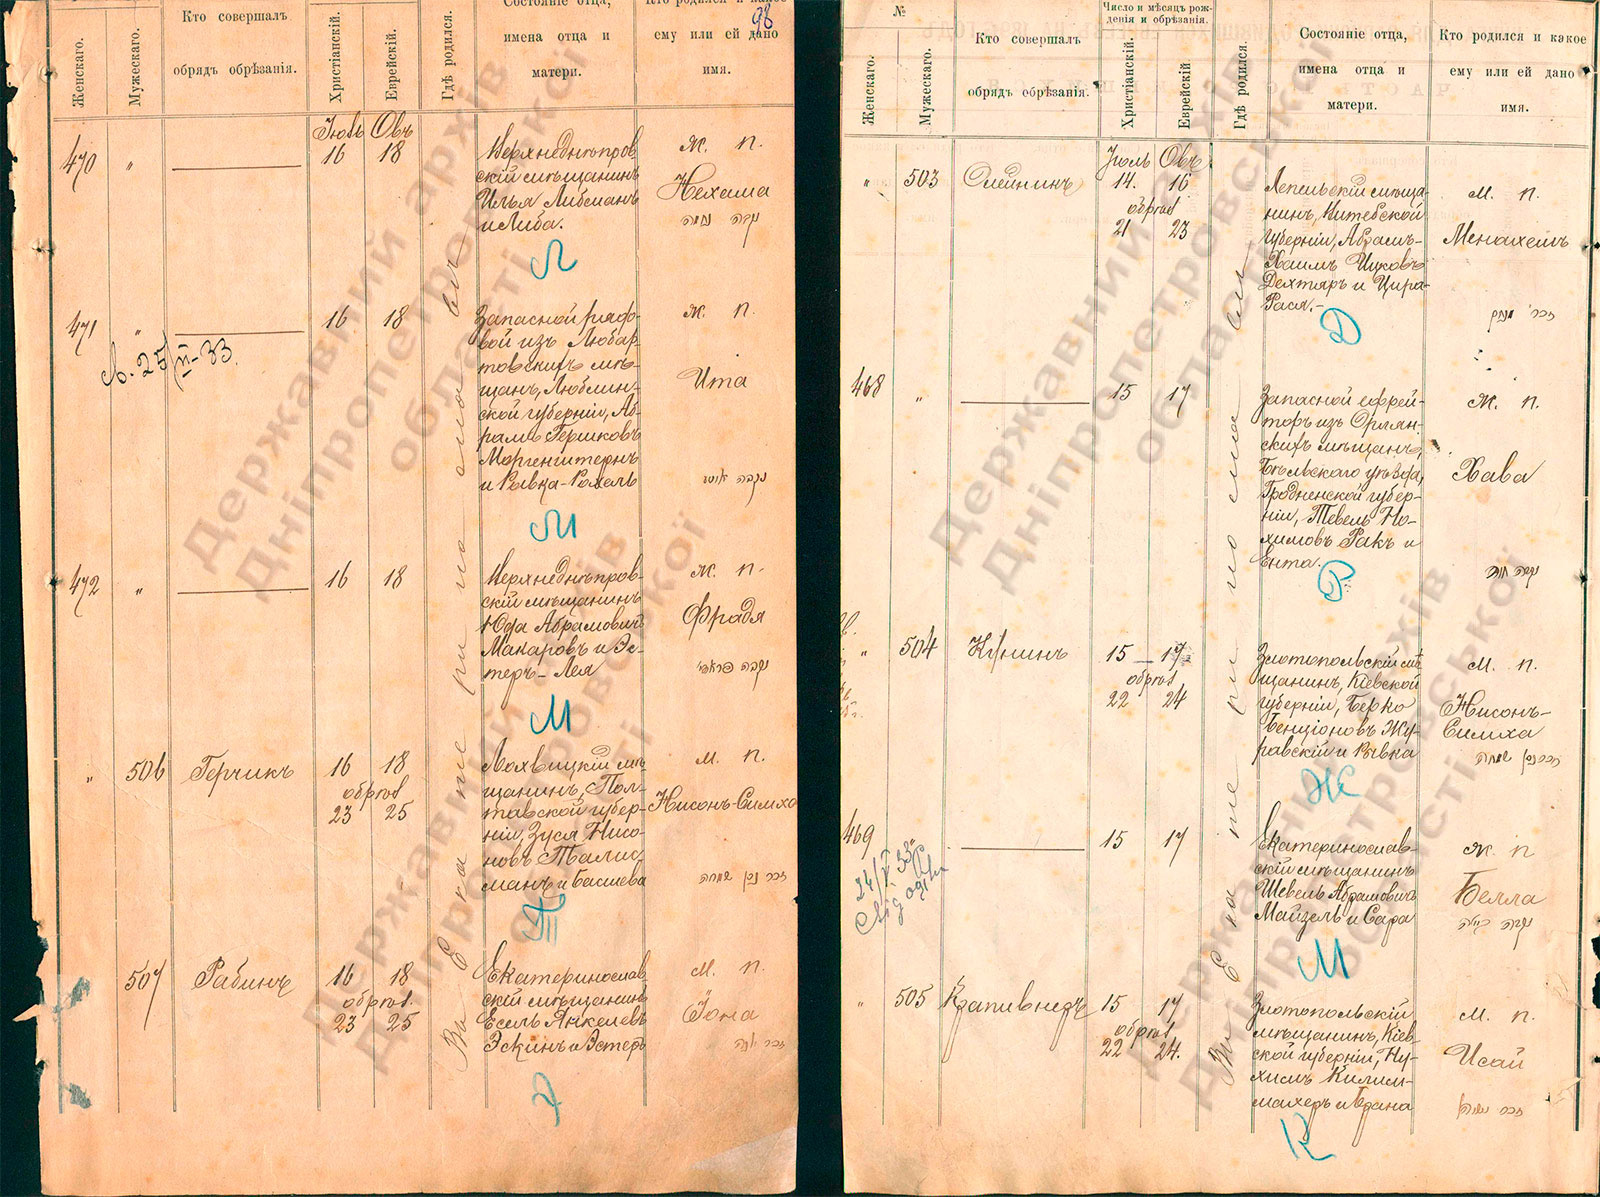 98
Женскаго.
Мужескаго.
Кто совершалъ
обрядъ обрѣзанія.
Христіанскій.
Еврейскій.
Гдѣ родился.
Состояніе отца,
имена отца и
матери.
Кто родился и какое
ему или ей дано
имя.
Въ Екатеринославѣ
Іюль Овъ
470 " 16 18
Верхнеднѣпров
скій мѣщанинъ
Илья Либманъ
и Либа.
Ж. П.
Нехама
נקבה נחמה
Л
471 " 16 18
Запасной рядо-
вой изъ Любар
товскихъ мѣ-
щанъ, Люблин-
ской губерніи, Аб-
рамъ Гершковъ
Моргенштернъ
и Рывка-Рохель
Ж. П.
Ита
נקבה איטא
М
472 " 16 18
Верхнеднѣпров-
скій мѣщанинъ
Юда Абрамовичъ
Макаровъ и Эс-
теръ-Лея
Ж. П.
Фрадя
М
" 506 Герчикъ 16 18
обрѣз
23 25
Лохвицкій мѣ-
щанинъ, Пол-
тавской губер-
ніи, Зуся Нисо-
новъ Талис-
манъ и Басшева
М. П.
Нисонъ-Симха
זכר ניסן שמחה
Т
507 Рабинъ 16 18
обрѣз.
23 25
Екатеринослав
скій мѣщанинъ
Есель Янкелевъ
Эскинъ и Эстеръ
М. П.
Іона
זכר יונה
Э
№
Женскаго.
Мужескаго.
Кто совершалъ
обрядъ обрѣзанія.
Число и мѣсяцъ рож-
денія и обрѣзанія.
Христіанскій.
Еврейскій
Гдѣ родился.
Состояніе отца,
имена отца и
матери.
Кто родился и какое
ему или ей дано
имя.
Въ Екатеринославѣ
Іюль Овъ
" 503 Олейнинъ 14. 16
обрѣз
21 23
Лепельскій мѣща-
нинъ, Витебской
губерніи, Абрамъ-
Хаимъ Ицковъ
Дехтяръ и Цира-
Рася.-
М. П.
Менахемъ
Д
468 " 15 17
Запасной ефрей-
торъ изъ Орлян-
скихъ мѣщанъ,
Бѣльскаго уѣзда,
Гродненской губер-
ніи, Тевель Но-
химовъ Ракъ и
Ента.
Ж. П.
Хава
נקבה חוה
Р
" 504 Кунинъ 15 17
обрѣз
22 24
Златопольскій мѣ
щанинъ, Кіевской
губерніи, Берко
Бенціоновъ Жу-
равскій и Рывка
М. П.
Нисонъ-
Симха
זכר ניסן שמחה
Ж
469 15 17
Екатеринослав-
скій мѣщанинъ
Шевель Абрамовичъ
Майзель и Сара
Ж. П
Белла
נקבה ביילה
М
" 505 Крапивнеръ 15 17
обрѣз
22 24.
Златопольскій
мѣщанинъ, Кіев-
ской губерніи, Ну-
химъ Килим-
махеръ и Брана
М. П.
Исай
К
Державний архів
Дніпропетровської
області